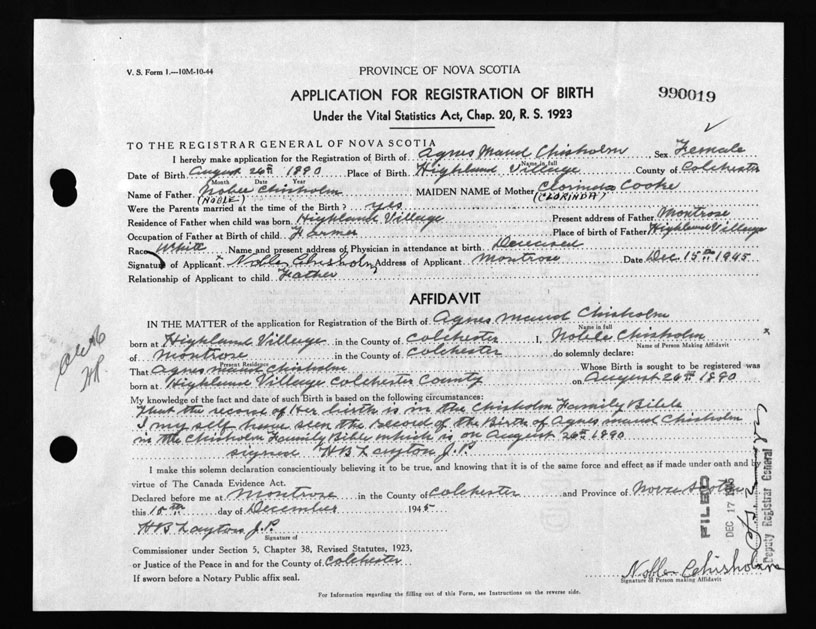 V. S. Form 1.—10M-10-44
PROVINCE OF NOVA SCOTIA
APPLICATION FOR REGISTRATION OF BIRTH
990019
Under the Vital Statistics Act, Chap. 20, R. S. 1923
TO THE REGISTRAR GENERAL OF NOVA SCOTIA
I hereby make application for the Registration of Birth of Agnes Maud Chisholm Sex Female
Name in full
Date of Birth August 26th 1890 Place of Birth Highland Village County of Colchester
Month Date Year
Name of Father Noble Chisholm MAIDEN NAME of Mother Clorinda Cooke
(NOBLE) (CLORINDA)
Were the Parents married at the time of the Birth? yes
Residence of Father when child was born Highland Village Present address of Father Montrose
Occupation of Father at Birth of child Farmer Place of birth of Father Highland Village
Race White Name and present address of Physician in attendance at birth Deceised
Signature of Applicant Noble Chisholm Address of Applicant Montrose Date Dec 15th 1945
Relationship of Applicant to child Father
AFFIDAVIT
IN THE MATTER of the application for Registration of the Birth of Agnes maud Chisholm
Name in full
born at Highland Village in the County of Colchester I, Noble Chisholm
Name of Person Making Affidavit
of Montrose in the County of Colchester do solemnly declare:
Present Residence
That Agnes maud Chisholm Whose Birth is sought to be registered was
born at Highland Village Colchester County on August 26th 1890
My knowledge of the fact and date of such Birth is based on the following circumstances:
That the record of Her birth is in the Chisholm Family Bible
I my self have seen the record of the Birth of Agnes maud Chisholm
in the Chisholm Family Bible which is on August 26th 1890
signed HB Layton J.P.
I make this solemn declaration conscientiously believing it to be true, and knowing that it is of the same force and effect as if made under oath and by
virtue of The Canada Evidence Act.
Declared before me at Montrose in the County of Colchester and Province of Nova Scotia
this 15th day of December 1945
HB Layton J.P.
Signature of
Commissioner under Section 5, Chapter 38, Revised Statutes, 1923,
or Justice of the Peace in and for the County of Colchester
If sworn before a Notary Public affix seal.
Noble Chisholm
Signature of Person making Affidavit
For Information regarding the filling out of this Form, see Instructions on the reverse side.
FILED
DEC 17 1945
Deputy Registrar General